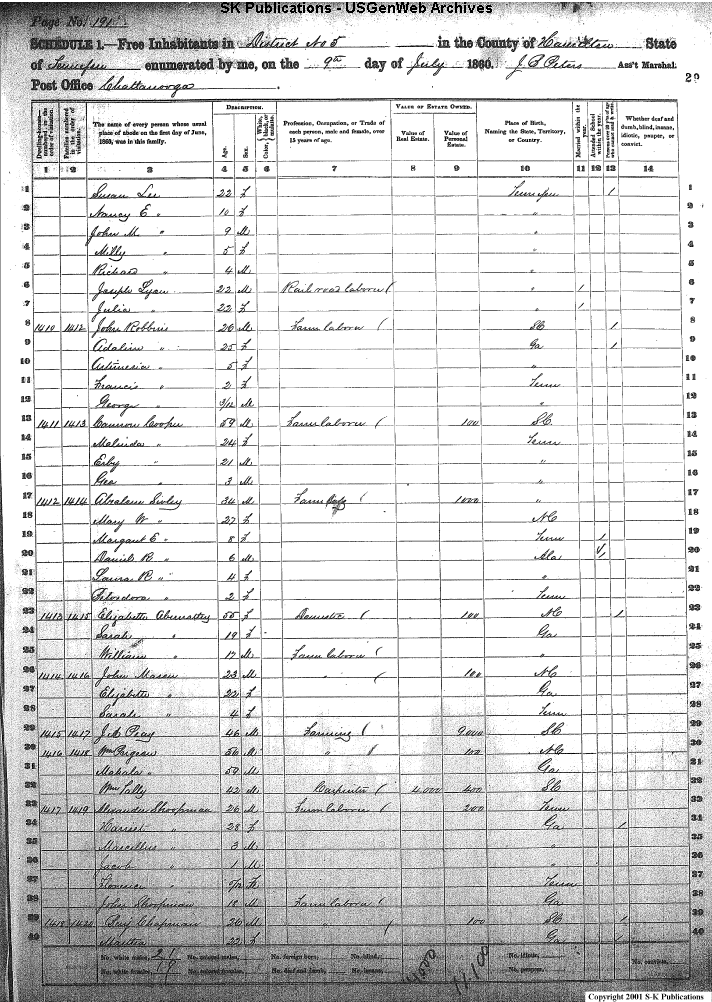 SK Publications - USGenWeb Archives
Page No. 191
SCHEDULE 1.—Free Inhabitants in District No 5 in the County of Hamilton State
of Tennessee enumerated by me, on the 9th day of July 1860. J B Peters Ass't Marshal.
Post Office Chattanooga.
Dwelling-houses—numbered in the order of visitation.
Families numbered in the order of visitation.
The name of every person whose usual place of abode on the first day of June, 1860, was in this family.
DESCRIPTION.
Age.
Sex.
Color, White, black, or mulatto.
Profession, Occupation, or Trade of each person, male and female, over 15 years of age.
VALUE OF ESTATE OWNED.
Value of Real Estate.
Value of Personal Estate.
Place of Birth, Naming the State, Territory, or Country.
Married within the year.
Attended School within the year.
Whether deaf and dumb, blind, insane, idiotic, pauper, or convict.
1 2 3 4 5 6 7 8 9 10 11 12 13 14
1 Susan Lee 22 f Tennessee 1 1
2 Nancy E " 10 f " 2
3 John M " 9 M " 3
4 Milly " 5 f " 4
5 Richard " 4 M " 5
6 Joseph Lyon 22 M Rail road laborer " 1 6
7 Julia " 22 f " 1 7
8 1410 1412 John Robbins 26 M Farm laborer SC 1 8
9 Adaline " 25 f Ga 1 9
10 Artimesia " 5 f " 10
11 Francis " 2 f Tenn 11
12 George " 3/12 M " 12
13 1411 1413 Cannon Cooper 59 M Farm laborer 100 SC 13
14 Malinda " 24 f Tenn 14
15 Erby " 21 M " 15
16 Geo " 3 M " 16
17 1412 1414 Abraham Sivley 34 M Farm 1000 " 17
18 Mary W " 27 f NC 18
19 Margaret E " 8 f Tenn 1 19
20 Daniel R " 6 M Ala 1 20
21 Laura R " 4 f " 21
22 " 2 f Tenn 22
23 1413 1415 Elizabeth Abernathy 55 f Domestic 100 NC 1 23
24 Sarah " 19 f Ga 24
25 William " 17 M Farm laborer " 25
26 1414 1416 John Mason 23 M " 100 NC 26
27 Elizabeth " 22 f Ga 27
28 Sarah " 4 f Tenn 28
29 1415 1417 J. M. Peay 46 M Farming 9,000 SC 29
30 1416 1418 Wm 56 M " 100 NC 30
31 Mahala " 59 M Ga 31
32 Wm Tally 42 M Carpenter 4,000 400 SC 32
33 1417 1419 Alexander Shoopman 26 M Farm laborer 200 Tenn 33
34 Harriet " 28 f Ga 1 34
35 Marcellus " 3 M " 35
36 Jacob " 1 M " 36
37 Florence " f Tenn 37
38 John Shoopman 18 M Farm laborer Ga 38
39 1418 1420 Benj Chapman 26 M " 100 SC 1 39
40 Martha 22 f Ga 1 40
No. white males, 21 No. colored males, No. foreign born, No. blind, No. idiotic, No. convicts,
No. white females, 19 No. colored females, No. deaf and dumb, No. insane, No. paupers,
4000 11,100
Copyright 2001 S-K Publications